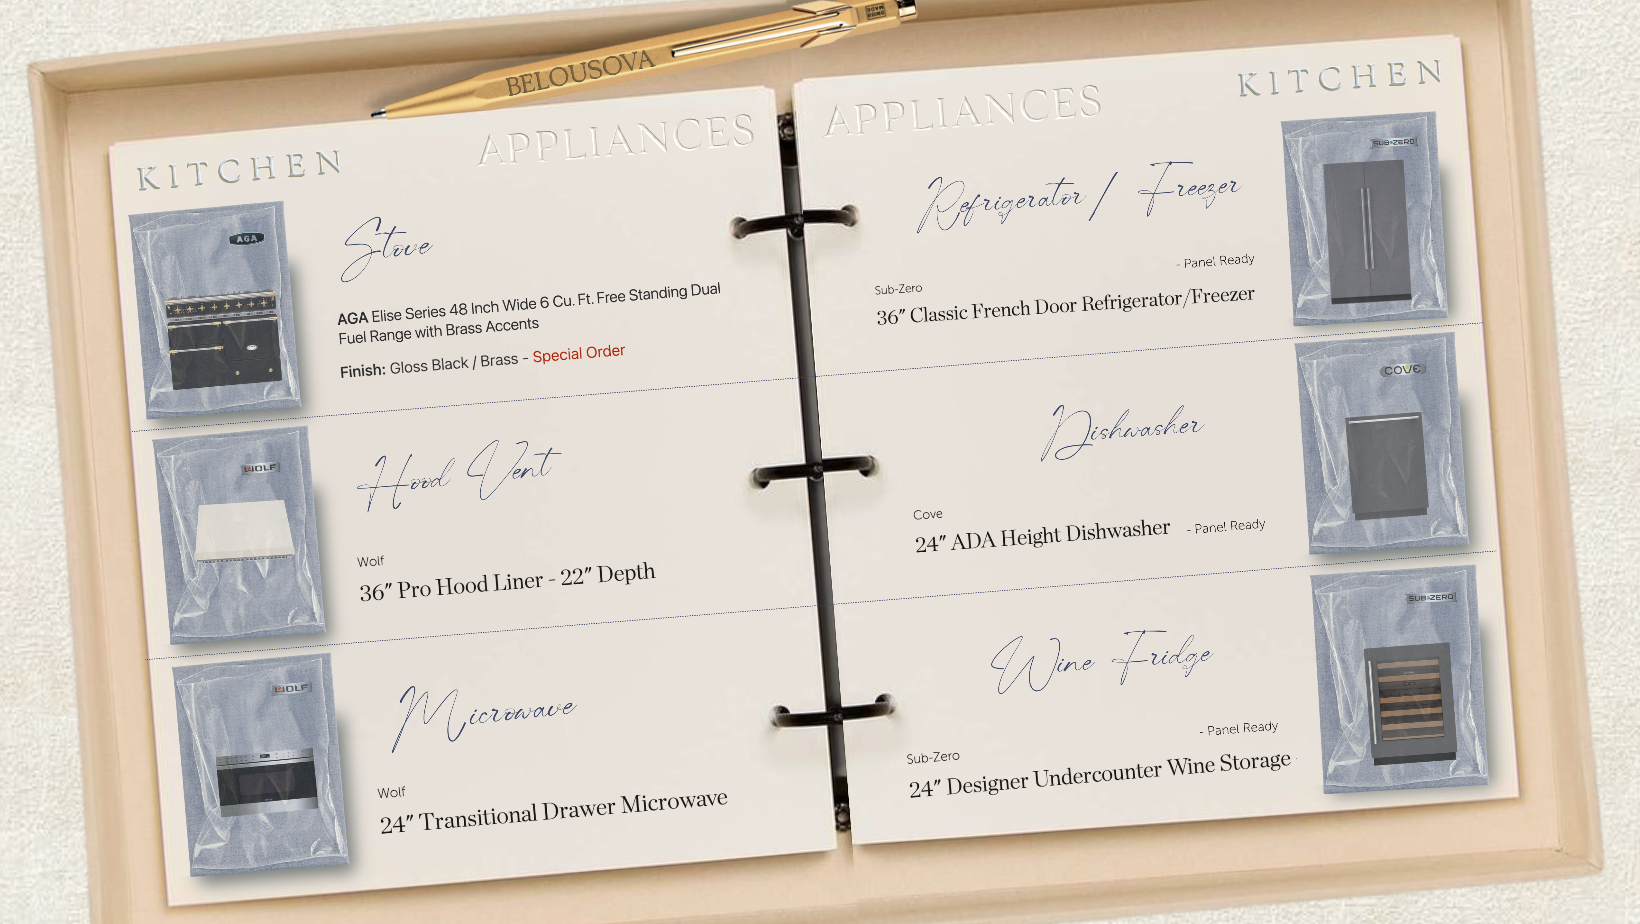 BELOUSOVA
SWISS
MADE
KITCHEN
APPLIANCES
AGA
Stove
AGA Elise Series 48 Inch Wide 6 Cu. Ft. Free Standing Dual
Fuel Range with Brass Accents
Finish: Gloss Black / Brass - Special Order
WOLF
Hood Vent
Wolf
36" Pro Hood Liner - 22" Depth
WOLF
Microwave
Wolf
24" Transitional Drawer Microwave
APPLIANCES
KITCHEN
SUB-ZERO
Refrigerator / Freezer
- Panel Ready
Sub-Zero
36" Classic French Door Refrigerator/Freezer
COVE
Dishwasher
Cove
24" ADA Height Dishwasher - Panel Ready
SUB-ZERO
Wine Fridge
- Panel Ready
Sub-Zero
24" Designer Undercounter Wine Storage